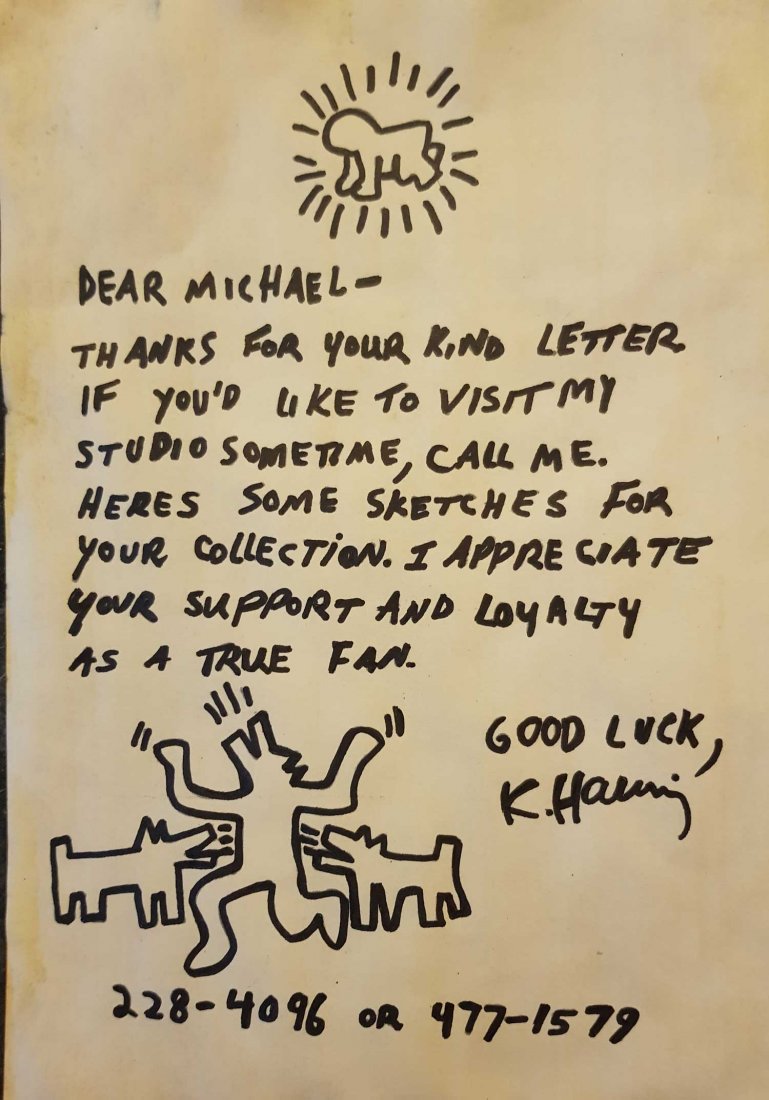 DEAR MICHAEL-
THANKS FOR YOUR KIND LETTER
IF YOU'D LIKE TO VISIT MY
STUDIO SOMETIME, CALL ME.
HERES SOME SKETCHES FOR
YOUR COLLECTION. I APPRECIATE
YOUR SUPPORT AND LOYALTY
AS A TRUE FAN.
GOOD LUCK,
K. Haring
228-4096 OR 477-1579